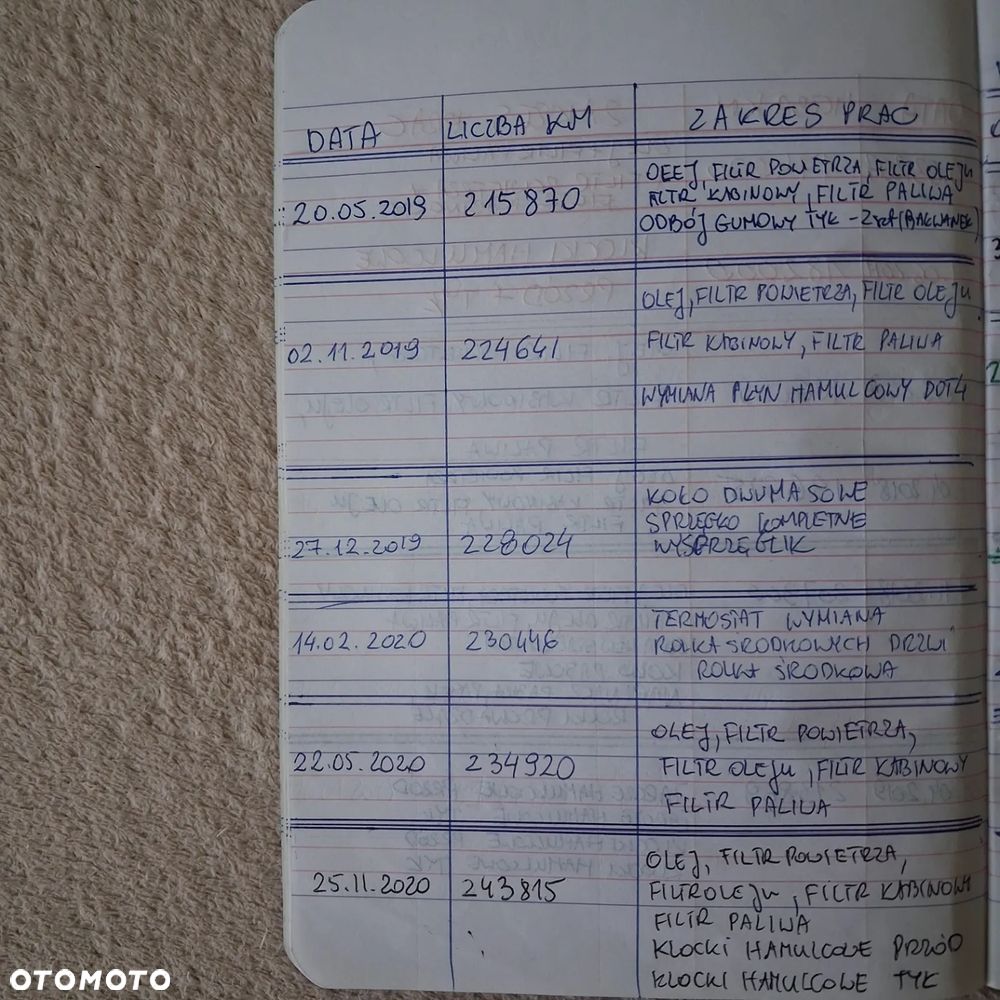 DATA LICZBA KM ZAKRES PRAC
OLEJ, FILTR POWIETRZA, FILTR OLEJU
20.05.2019 215870 FILTR KABINOWY, FILTR PALIWA
ODBÓJ GUMOWY TYŁ - 2szt (BAŁWANEK)
OLEJ, FILTR POWIETRZA, FILTR OLEJU
02.11.2019 224641 FILTR KABINOWY, FILTR PALIWA
WYMIANA PŁYN HAMULCOWY DOT4
KOŁO DWUMASOWE
SPRZĘGŁO KOMPLETNE
27.12.2019 228024 WYSPRZĘGLIK
TERMOSTAT WYMIANA
14.02.2020 230446 ROLKA ŚRODKOWYCH DRZWI
ROLKA ŚRODKOWA
OLEJ, FILTR POWIETRZA,
22.05.2020 234920 FILTR OLEJU, FILTR KABINOWY
FILTR PALIWA
OLEJ, FILTR POWIETRZA,
25.11.2020 243815 FILTR OLEJU, FILTR KABINOWY
FILTR PALIWA
KLOCKI HAMULCOWE PRZÓD
KLOCKI HAMULCOWE TYŁ
OTOMOTO